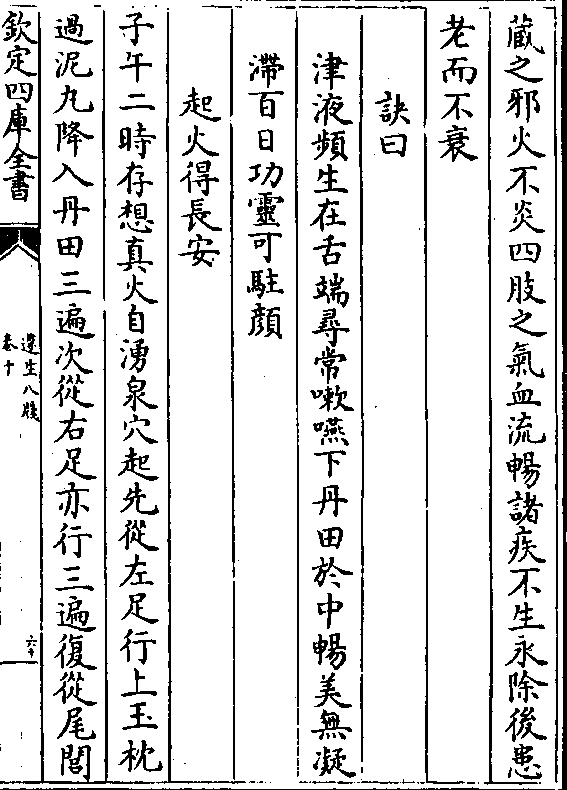 藏之邪火不炎四肢之氣血流暢諸疾不生永除後患
老而不衰
訣曰
津液頻生在舌端尋常嗽嚥下丹田於中暢美無凝
滯百日功靈可駐顔
起火得長安
子午二時存想真火自湧泉穴起先從左足行上玉枕
過泥九降入丹田三遍次從右足亦行三遍復從尾閭
欽定四庫全書
遵生八牋
卷十
六十